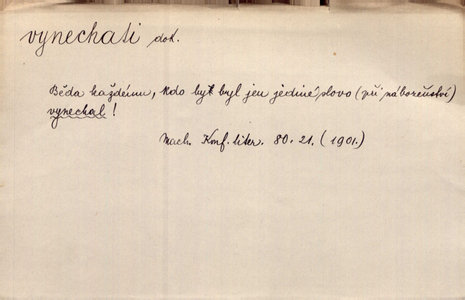 vynechati dok.
Běda každému, kdo byť byl jen jediné slovo (při náboženství)
vynechal!
Mach. Konf. liter. 80. 21. (1901.)